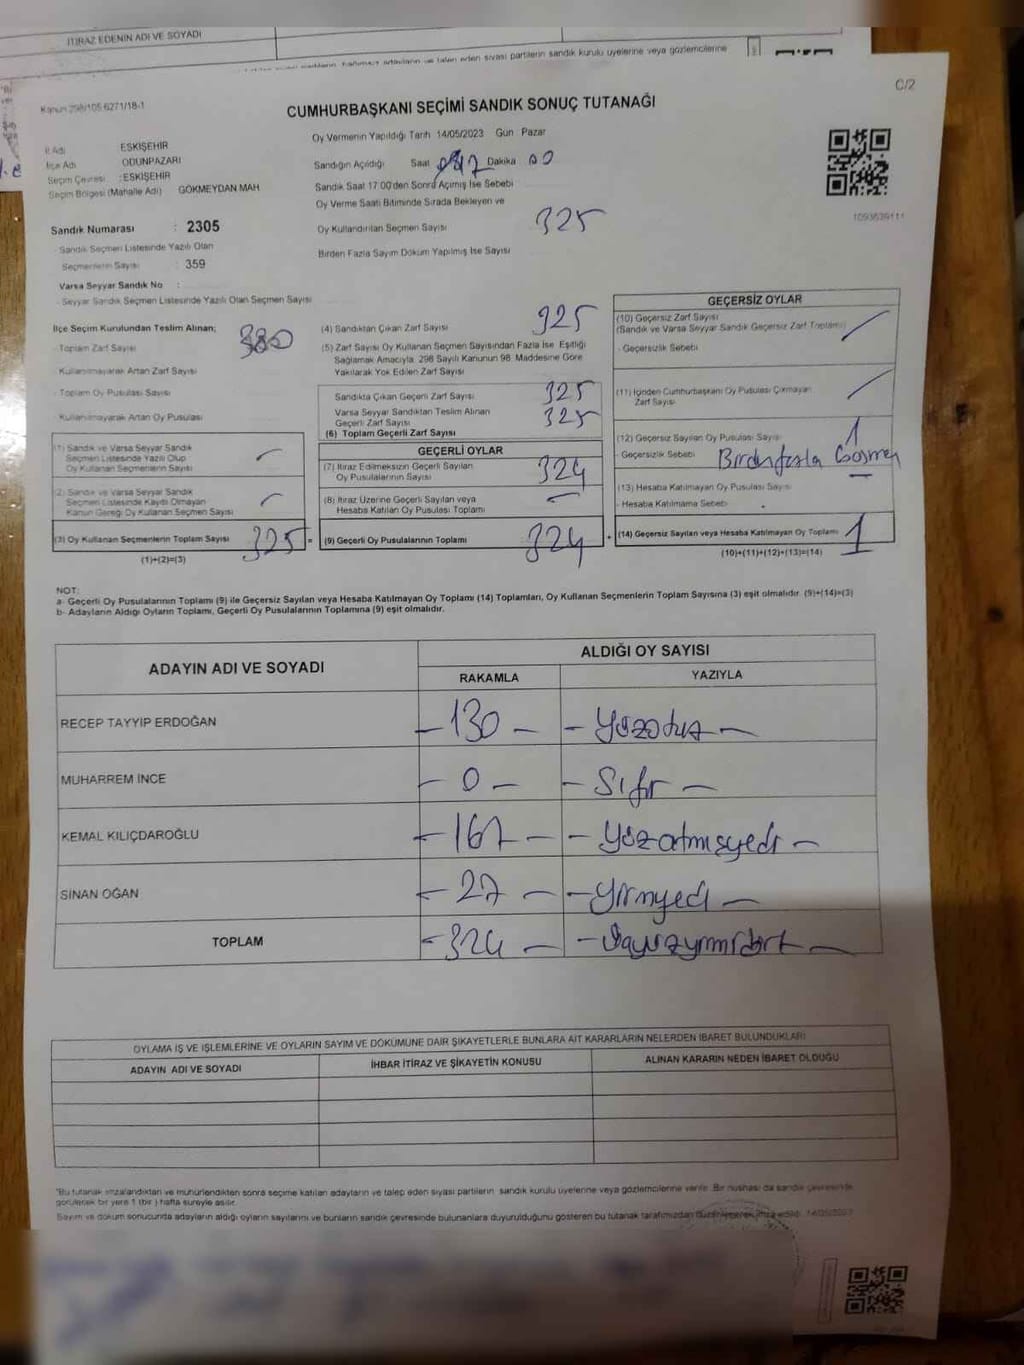 İTİRAZ EDENİN ADI VE SOYADI
siyasi partilerin sandık kurulu üyelerine veya gözlemcilerine
C/2
Kanun 298/105 6271/18-1
CUMHURBAŞKANI SEÇİMİ SANDIK SONUÇ TUTANAĞI
Oy Vermenin Yapıldığı Tarih 14/05/2023 Gün Pazar
İl Adı ESKİŞEHİR
İlçe Adı ODUNPAZARI
Seçim Çevresi : ESKİŞEHİR
Seçim Bölgesi (Mahalle Adı) GÖKMEYDAN MAH
Sandığın Açıldığı Saat 17 Dakika 00
Sandık Saat 17 00'den Sonra Açılmış İse Sebebi
Oy Verme Saati Bitiminde Sırada Bekleyen ve
Oy Kullandırılan Seçmen Sayısı 325
Birden Fazla Sayım Döküm Yapılmış İse Sayısı
1093639111
Sandık Numarası : 2305
Sandık Seçmen Listesinde Yazılı Olan
Seçmenlerin Sayısı : 359
Varsa Seyyar Sandık No :
Seyyar Sandık Seçmen Listesinde Yazılı Olan Seçmen Sayısı
İlçe Seçim Kurulundan Teslim Alınan;
- Toplam Zarf Sayısı 380
Kullanılmayarak Artan Zarf Sayısı
Toplam Oy Pusulası Sayısı
Kullanılmayarak Artan Oy Pusulası
(1) Sandık ve Varsa Seyyar Sandık
Seçmen Listesinde Yazılı Olup
Oy Kullanan Seçmenlerin Sayısı –
(2) Sandık ve Varsa Seyyar Sandık
Seçmen Listesinde Kaydı Olmayan
Kanun Gereği Oy Kullanan Seçmen Sayısı –
(3) Oy Kullanan Seçmenlerin Toplam Sayısı 325 =
(1)+(2)=(3)
(4) Sandıktan Çıkan Zarf Sayısı 325
(5) Zarf Sayısı Oy Kullanan Seçmen Sayısından Fazla İse Eşitliği
Sağlamak Amacıyla 298 Sayılı Kanunun 98. Maddesine Göre
Yakılarak Yok Edilen Zarf Sayısı
Sandıkta Çıkan Geçerli Zarf Sayısı 325
Varsa Seyyar Sandıktan Teslim Alınan
Geçerli Zarf Sayısı 325
(6) Toplam Geçerli Zarf Sayısı
GEÇERLİ OYLAR
(7) İtiraz Edilmeksizin Geçerli Sayılan
Oy Pusulalarının Sayısı 324
(8) İtiraz Üzerine Geçerli Sayılan veya
Hesaba Katılan Oy Pusulası Toplamı –
(9) Geçerli Oy Pusulalarının Toplamı 324 +
GEÇERSİZ OYLAR
(10) Geçersiz Zarf Sayısı
(Sandık ve Varsa Seyyar Sandık Geçersiz Zarf Toplamı) /
- Geçersizlik Sebebi
(11) İçinden Cumhurbaşkanı Oy Pusulası Çıkmayan
Zarf Sayısı /
(12) Geçersiz Sayılan Oy Pusulası Sayısı 1
- Geçersizlik Sebebi Birden fazla
(13) Hesaba Katılmayan Oy Pusulası Sayısı –
- Hesaba Katılmama Sebebi
(14) Geçersiz Sayılan veya Hesaba Katılmayan Oy Toplamı 1
(10)+(11)+(12)+(13)=(14)
NOT:
a- Geçerli Oy Pusulalarının Toplamı (9) ile Geçersiz Sayılan veya Hesaba Katılmayan Oy Toplamı (14) Toplamları, Oy Kullanan Seçmenlerin Toplam Sayısına (3) eşit olmalıdır. (9)+(14)=(3)
b- Adayların Aldığı Oyların Toplamı, Geçerli Oy Pusulalarının Toplamına (9) eşit olmalıdır.
ADAYIN ADI VE SOYADI
ALDIĞI OY SAYISI
RAKAMLA YAZIYLA
RECEP TAYYİP ERDOĞAN – 130 – – Yüzotuz –
MUHARREM İNCE – 0 – – Sıfır –
KEMAL KILIÇDAROĞLU – 167 – – Yüzatmışyedi –
SİNAN OĞAN – 27 – – Yirmiyedi –
TOPLAM – 324 – – üçyüzyirmidört –
OYLAMA İŞ VE İŞLEMLERİNE VE OYLARIN SAYIM VE DÖKÜMÜNE DAİR ŞİKAYETLERLE BUNLARA AİT KARARLARIN NELERDEN İBARET BULUNDUKLARI
ADAYIN ADI VE SOYADI İHBAR İTİRAZ VE ŞİKAYETİN KONUSU ALINAN KARARIN NEDEN İBARET OLDUĞU
*Bu tutanak imzalandıktan ve mühürlendikten sonra seçime katılan adayların ve talep eden siyasi partilerin sandık kurulu üyelerine veya gözlemcilerine verilir. Bir nüshası da sandık çevresinde
görülecek bir yere 1 (bir) hafta süreyle asılır.
Sayım ve döküm sonucunda adayların aldığı oyların sayılarını ve bunların sandık çevresinde bulunanlara duyurulduğunu gösteren bu tutanak tarafımızdan düzenlenerek imza edildi. 14/05/2023